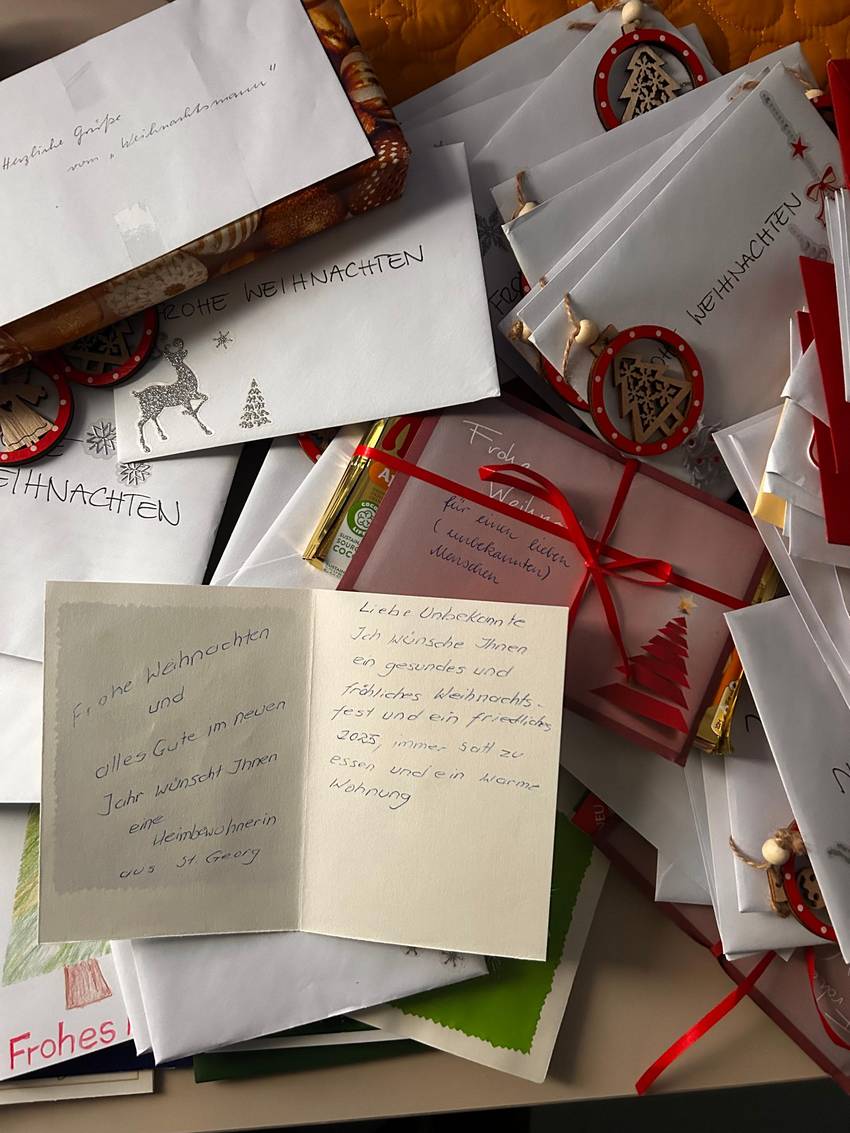 Herzliche Grüße
vom „Weihnachtsmann"
FROHE WEIHNACHTEN
WEIHNACHTEN
WEIHNACHTEN
Frohe
für einen lieben
(unbekannten)
Menschen
Frohe Weihnachten
und
alles Gute im neuen
Jahr wünscht Ihnen
eine
Heimbewohnerin
aus St. Georg
Liebe Unbekannte
Ich wünsche Ihnen
ein gesundes und
fröhliches Weihnachts-
fest und ein friedliches
2025, immer satt zu
essen und ein warme
Wohnung
Frohes